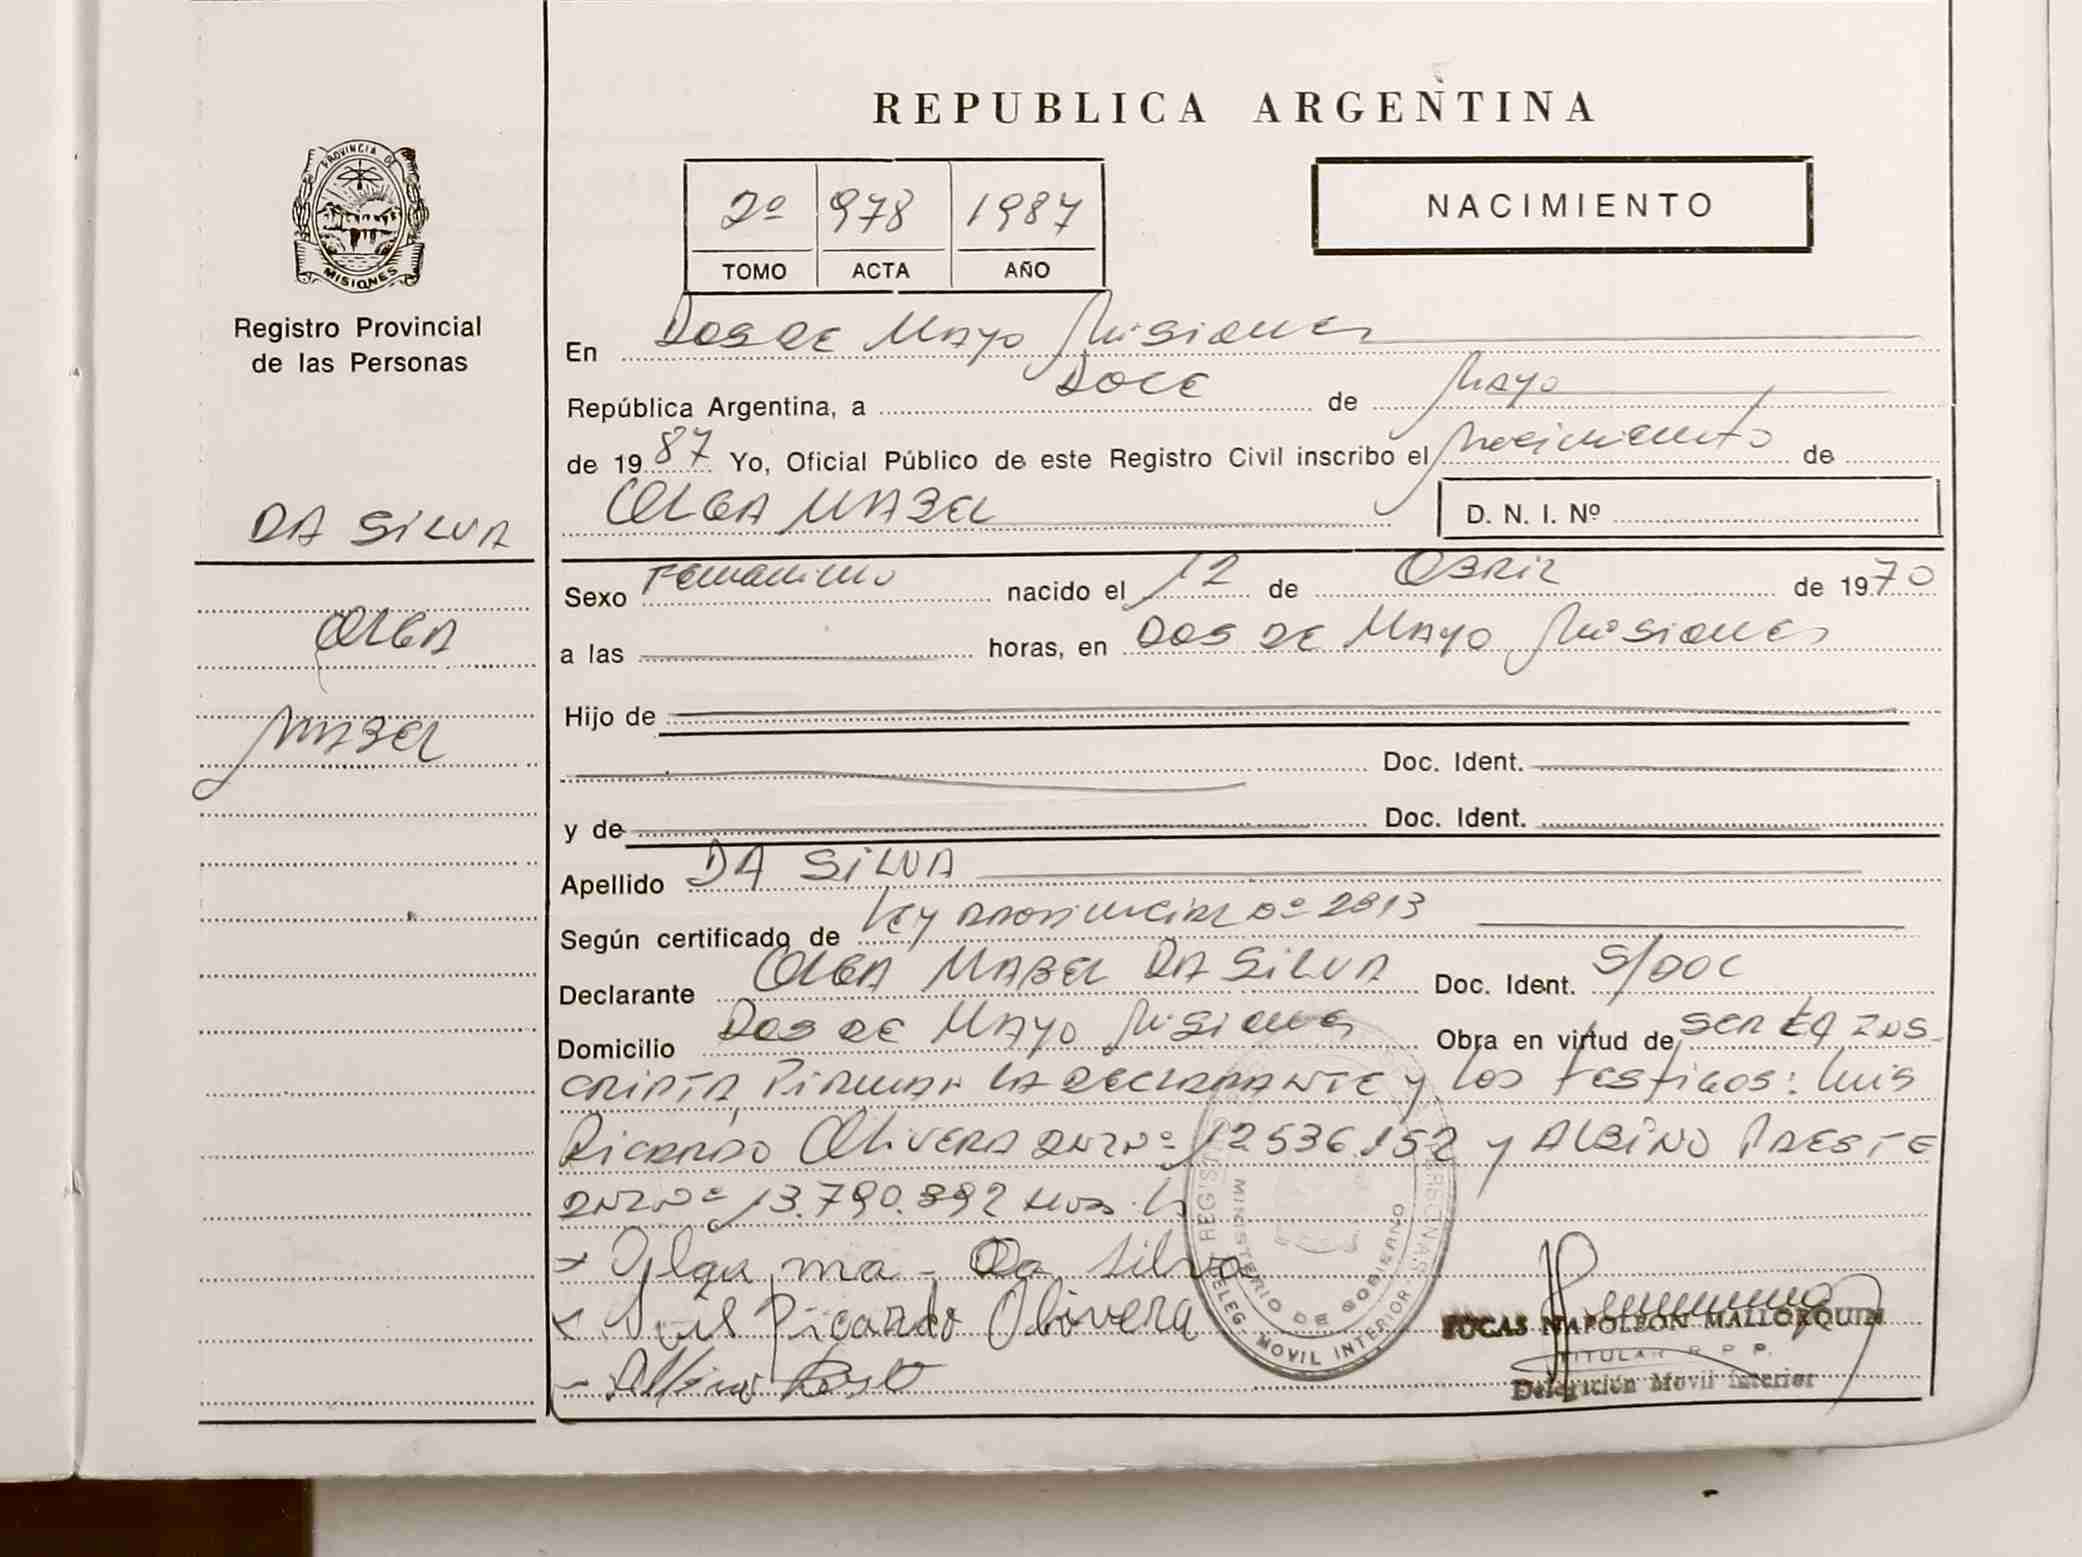 PROVINCIA DE
MISIONES
Registro Provincial
de las Personas
DA SILVA
OLGA
MABEL
REPUBLICA ARGENTINA
2º 978 1987
TOMO ACTA AÑO
NACIMIENTO
En DOS DE MAYO Misiones
República Argentina, a DOCE de Mayo
de 1987 Yo, Oficial Público de este Registro Civil inscribo el Nacimiento de
OLGA MABEL D. N. I. Nº
Sexo Femenino nacido el 12 de ABRIL de 1970
a las horas, en DOS DE MAYO Misiones
Hijo de
Doc. Ident.
y de Doc. Ident.
Apellido DA SILVA
Según certificado de Ley provincial Nº 2813
Declarante OLGA MABEL DA SILVA Doc. Ident. S/DOC
Domicilio DOS DE MAYO Misiones Obra en virtud de ser la ins-
cripta, Firman la declarante y los testigos: Luis
Ricardo Olivera DNI Nº 12536.152 y ALBINO PRESTE
DNI Nº 13.790.892
Olga ma - Da silva
Luis Ricardo Olivera
Albino
REGISTRO
MINISTERIO DE GOBIERNO
DELEG. MOVIL INTERIOR
FUCAS NAPOLEON MALLORQUIN
TITULAR R. P. P.
Delegación Movil Interior